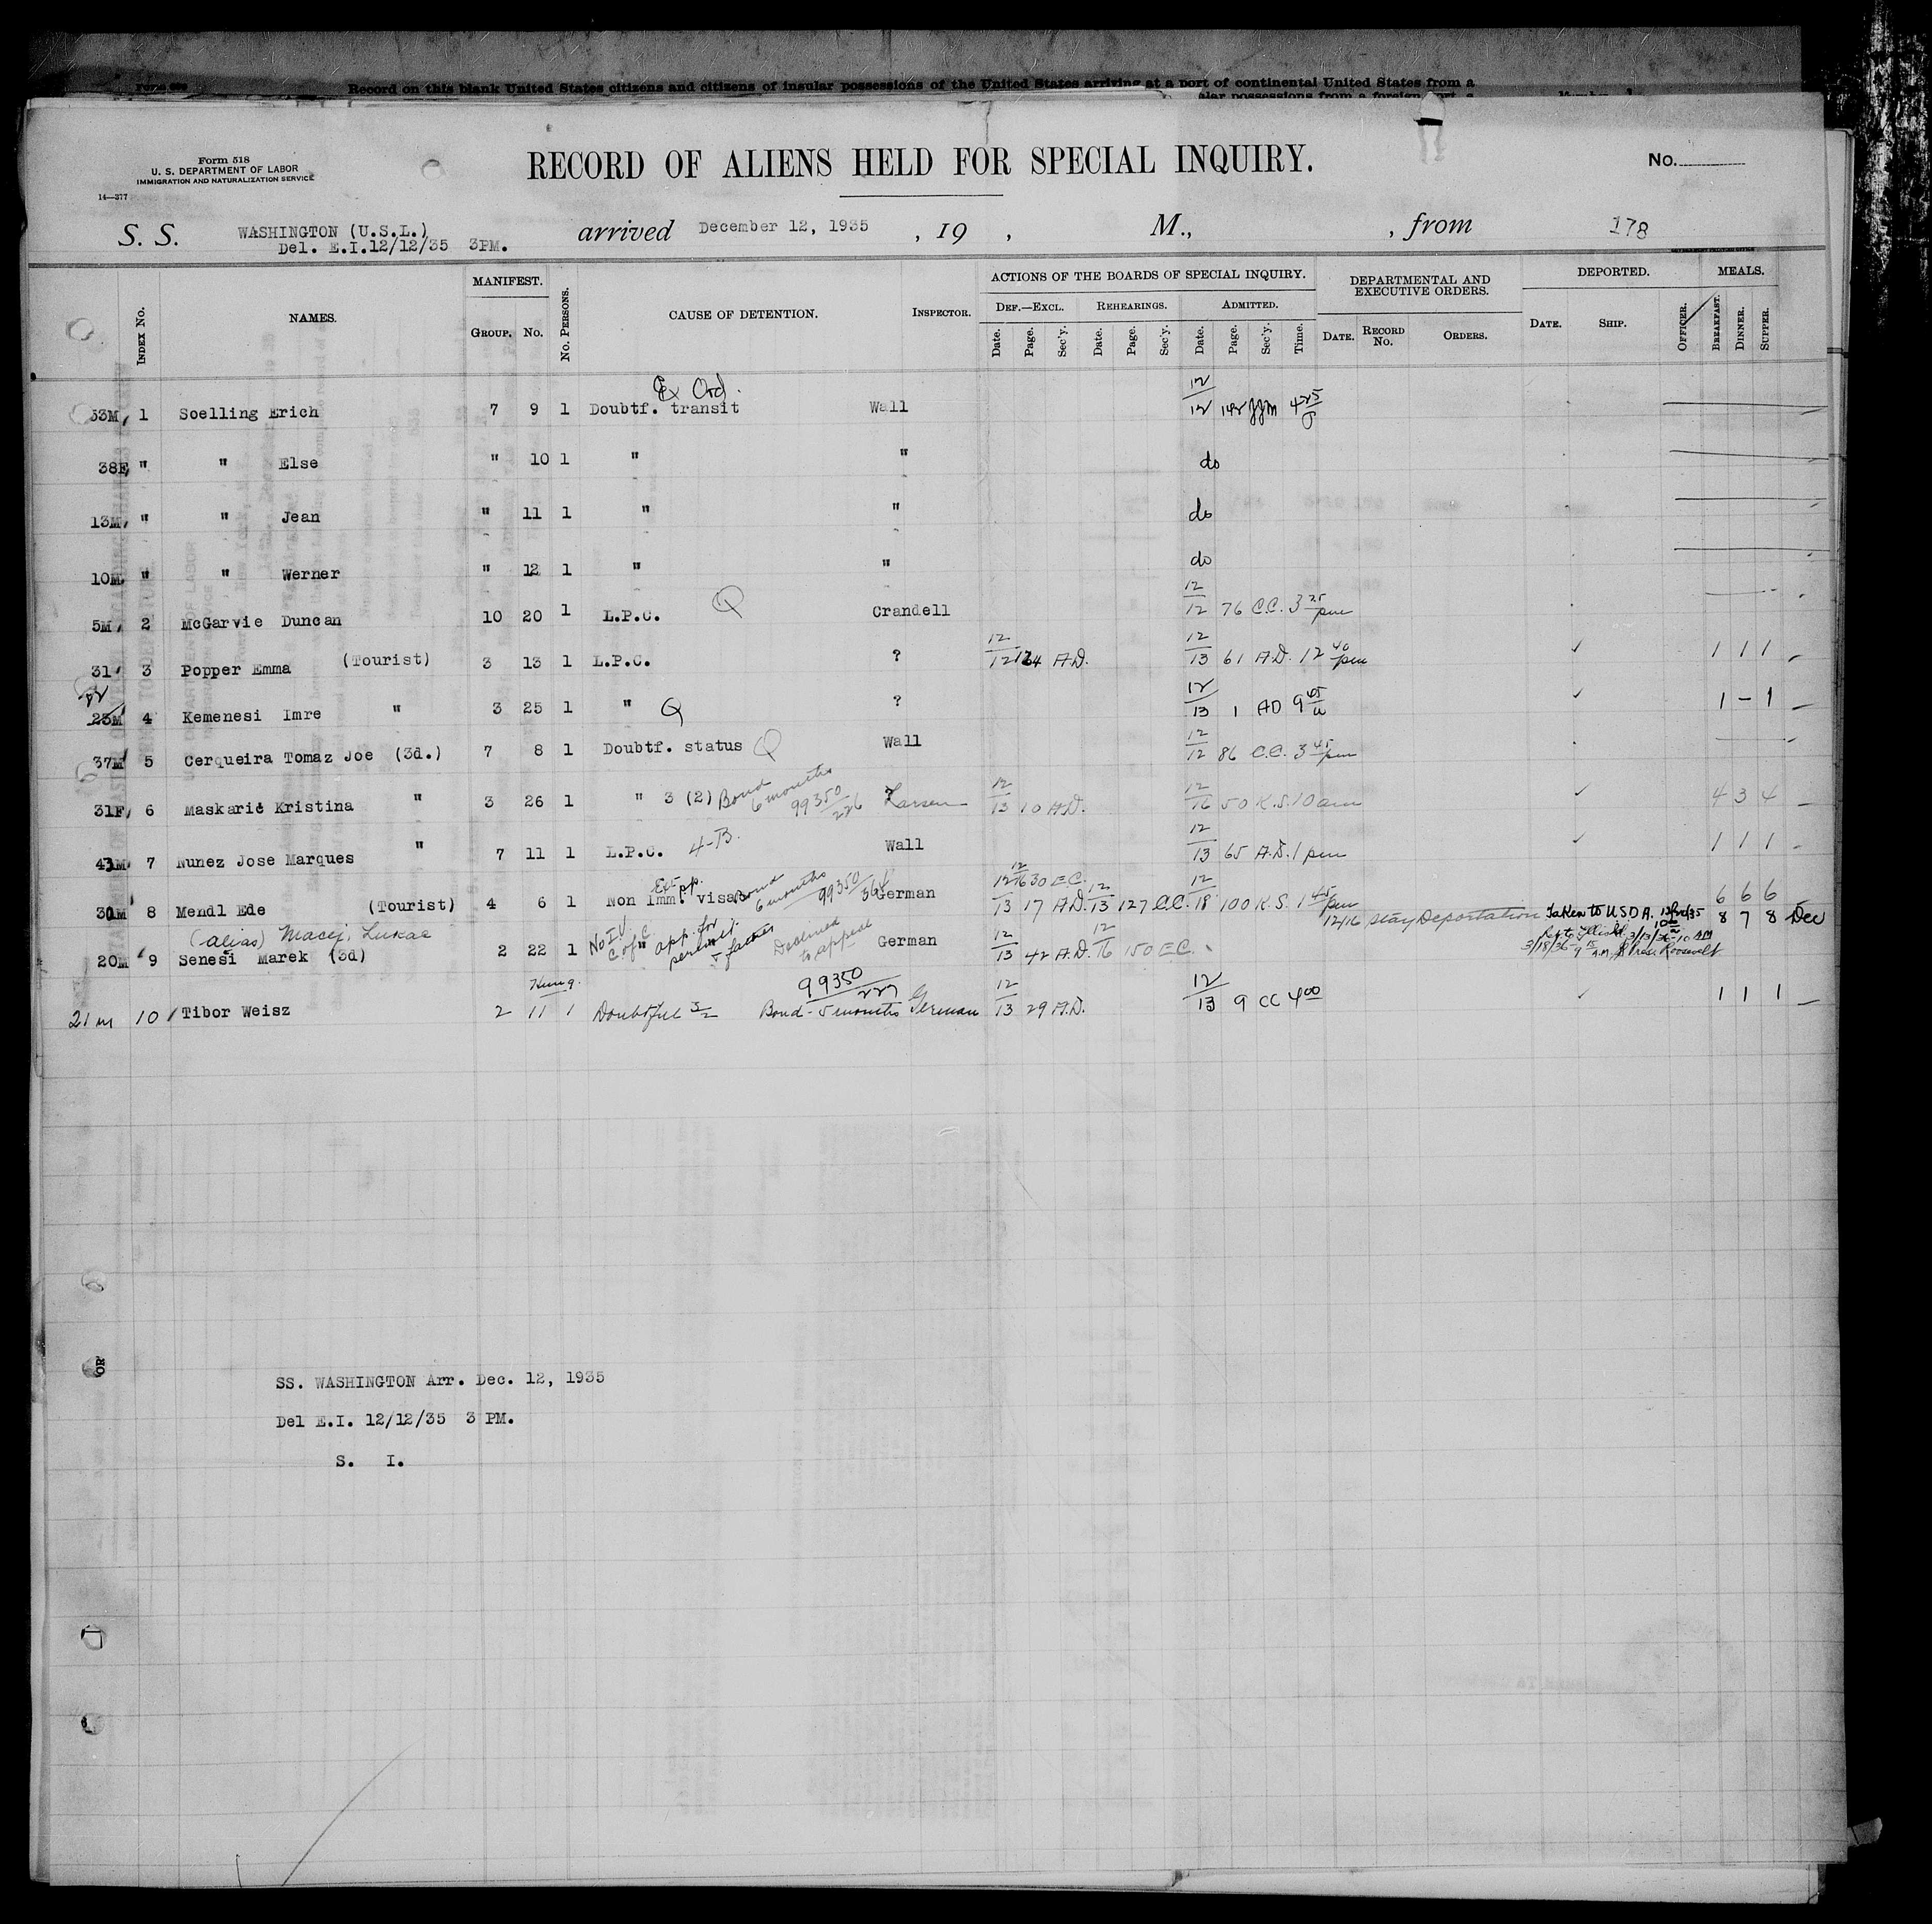 Form 630
Record on this blank United States citizens and citizens of insular possessions of the United States arriving at a port of continental United States from a
Form 518
U. S. DEPARTMENT OF LABOR
IMMIGRATION AND NATURALIZATION SERVICE
14—377
RECORD OF ALIENS HELD FOR SPECIAL INQUIRY.
No.
S. S. WASHINGTON (U.S.L.) arrived December 12, 1935 , 19 , M., , from 178
Del. E.I.12/12/35 3PM.
INDEX No. NAMES. MANIFEST. GROUP. No. No. PERSONS. CAUSE OF DETENTION. INSPECTOR. ACTIONS OF THE BOARDS OF SPECIAL INQUIRY. DEF.—EXCL. Date. Page. Sec'y. REHEARINGS. Date. Page. Sec'y. ADMITTED. Date. Page. Sec'y. Time. DEPARTMENTAL AND EXECUTIVE ORDERS. DATE. RECORD No. ORDERS. DEPORTED. DATE. SHIP. OFFICER. MEALS. BREAKFAST. DINNER. SUPPER.
Ex Ord.
53M 1 Soelling Erich 7 9 1 Doubtf. transit Wall 12/12 142 JJM 4 25/P
38F " " Else " 10 1 " " do
13M " " Jean " 11 1 " " do
10M " " Werner " 12 1 " " do
5M 2 McGarvie Duncan 10 20 1 L.P.C. Q Crandell 12/12 76 C.C. 3 25 pm
31 3 Popper Emma (Tourist) 3 13 1 L.P.C. ? 12/12 A.D. 12/13 61 A.D. 12 40 pm 1 1 1
23M 4 Kemenesi Imre " 3 25 1 " Q ? 12/13 1 AD 9 45 a 1 - 1
37M 5 Cerqueira Tomaz Joe (3d.) 7 8 1 Doubtf. status Q Wall 12/12 86 C.C. 3 45 pm
31F 6 Maskaric Kristina " 3 26 1 " 3 (2) Bond 6 months 99350/226 ? Larsen 12/13 10 A.D. 12/16 50 K.S. 10 am 4 3 4
43M 7 Nunez Jose Marques " 7 11 1 L.P.C. 4-B. Wall 12/13 65 A.D. 1 pm 1 1 1
30M 8 Mendl Ede (Tourist) 4 6 1 Non Imm. visa Ext. pp. Bond 6 months 99350/364 German 12/13 17 A.D. 12/16 30 E.C. 12/13 127 C.C. 12/18 100 K.S. 1 45 pm 6 6 6
(alias) Macej, Lukac
20M 9 Senesi Marek (3d) 2 22 1 No I.V. " app. for permit. father Declined to appeal German 12/13 42 A.D. 12/16 150 E.C. 12/16 Stay Deportation Taken to U.S.D.A. 8 7 8 Dec
3/13/36-10 AM
3/18/36-9 15 A.M. Pres. Roosevelt
Hung.
21 m 10 Tibor Weisz 2 11 1 Doubtful 3/2 Bond - 5 months 99350/227 German 12/13 29 A.D. 12/13 9 CC 4 00 1 1 1
OR
SS. WASHINGTON Arr. Dec. 12, 1935
Del E.I. 12/12/35 3 PM.
S. I.